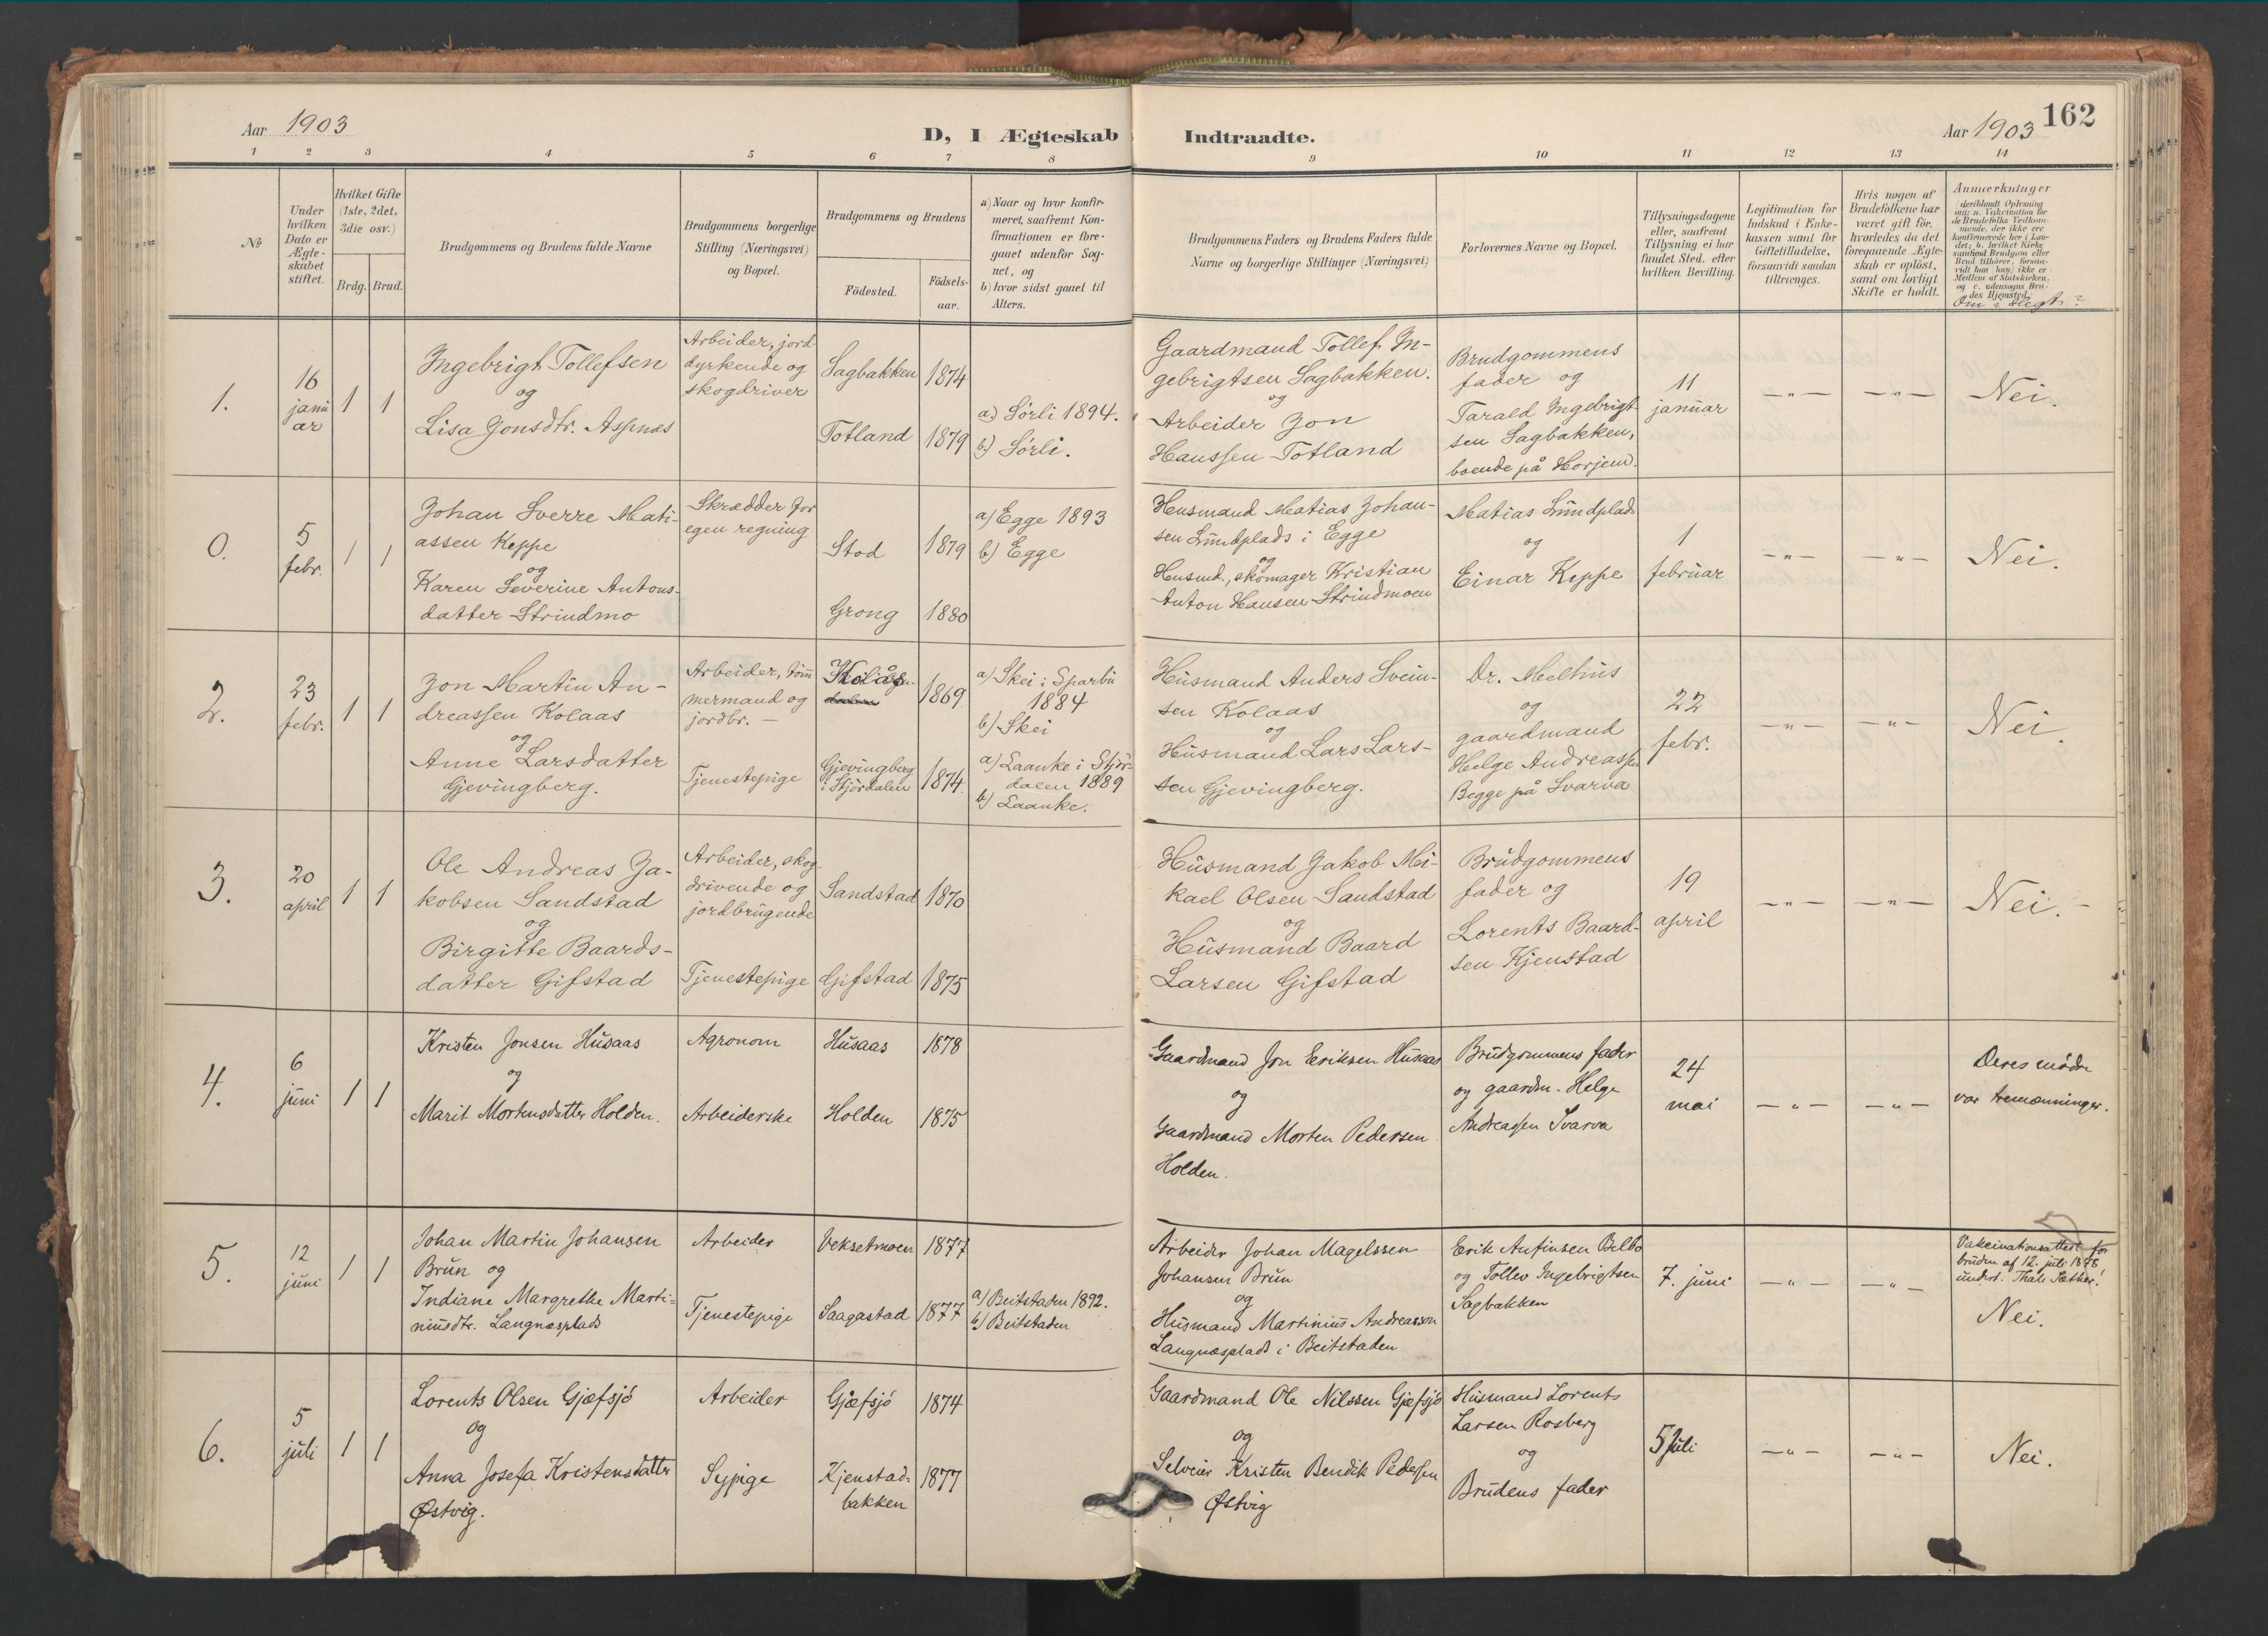 Aar 1903
D, I Ægteskab Indtraadte.
Aar 1903 162
1 2 3 4 5 6 7 8 9 10 11 12 13 14
No
Under hvilken Dato er Ægteskabet stiftet.
Hvilket Gifte (1ste, 2det, 3die osv.)
Brdg. Brud.
Brudgommens og Brudens fulde Navne
Brudgommens borgerlige Stilling (Næringsvei) og Bopæl.
Brudgommens og Brudens
Födested.
Födselsaar.
a) Naar og hvor konfirmeret, saafremt Konfirmationen er foregaaet udenfor Sognet, og
b) hvor sidst gaaet til Alters.
Brudgommens Faders og Brudens Faders fulde Navne og borgerlige Stillinger (Næringsvei)
Forlovernes Navne og Bopæl.
Tillysningsdagene eller, saafremt Tillysning ei har fundet Sted, efter hvilken Bevilling.
Legitimation for Indskud i Enkekassen samt for Giftetilladelse, forsaavidt saadan tiltrænges.
Hvis nogen af Brudefolkene har været gift før, hvorledes da det foregaaende Ægteskab er oplöst, samt om lovligt Skifte er holdt.
Anmerkninger (deriblandt Oplysning om: a. Vakcination for de Brudefolks Vedkommende, der ikke ere konfirmerede her i Landet; b. hvilket Kirkesamfund Brudgom eller Brud tilhörer, forsaavidt han (hun) ikke er Medlem af Statskirken, og c. udensogns Brudes Hjemsted.)
Om i slegt?
1.
16
janu
ar
1 1
Ingebrigt Tollefsen
og
Lisa Jonsdtr. Aspnæs
Arbeider, jord-
dyrkende og
skogdriver
Sagbakken 1874
Totland 1879
a) Sörli 1894.
b) Sörli.
Gaardmand Tollef In-
gebrigtsen Sagbakken.
og
Arbeider Jon
Hanssen Totland
Brudgommens
fader og
Tarald Ingebrigt-
sen Sagbakken,
boende på Horjem.
11
januar
— „ — — „ — Nei.
0.
5
febr.
1 1
Johan Sverre Mati-
assen Keppe
og
Karen Severine Antons-
datter Strindmo
Skrædder for
egen regning
Stod 1879
Grong 1880
a) Egge 1893
b) Egge
Husmand Matias Johan-
sen Lundplads i Egge
og
Husmd., skomager Kristian
Anton Hansen Strindmoen
Matias Lundplads
og
Einar Keppe
1
februar
— „ — — „ — Nei.
2.
23
febr.
1 1
Jon Martin An-
dreassen Kolaas
og
Anne Larsdatter
Gjevingberg.
Arbeider, töm
mermand og
jordbr. —
Tjenestepige
Kolås 1869
Gjevingberg
i Stjördalen 1874
a) Skei i Sparbu
1884
b) Skei
a) Laanke i Stjör-
dalen 1889
b) Laanke.
Husmand Anders Svein-
sen Kolaas
og
Husmand Lars Lars-
sen Gjevingberg.
Dr. Melhus
og
gaardmand
Helge Andreassen
Begge på Svarva
22
febr.
— „ — — „ — Nei.
3.
20
april
1 1
Ole Andreas Ja-
kobsen Sandstad
og
Birgitte Baards-
datter Gifstad
Arbeider, skog-
drivende og
jordbrugende
Tjenestepige
Sandstad 1870
Gifstad 1875
Husmand Jakob Mi-
kael Olsen Sandstad
og
Husmand Baard
Larsen Gifstad
Brudgommens
fader og
Lorents Baard-
sen Kjenstad
19
april
— „ — — „ — Nei. —
4.
6
juni
1 1
Kristen Jonsen Husaas
og
Marit Mortensdatter Holden.
Agronom
Arbeiderske
Husaas 1878
Holden 1875
Gaardmand Jon Eriksen Husaas
og
Gaardmand Morten Pedersen
Holden.
Brudgommens fader
og gaardm. Helge
Andreassen Svarva
24
mai
— „ — — „ —
Deres mödre
var tremenninger.
5.
12
juni
1 1
Johan Martin Johansen
Brun og
Indiane Margrethe Marti-
niusdtr. Langnæsplads
Arbeider
Tjenestepige
Veksetmoen 1877
Saagastad 1877
a) Beitstaden 1892.
b) Beitstaden
Arbeider Johan Magelssen
Johansen Brun
og
Husmand Martinius Andreassen
Langnæsplads i Beitstaden
Erik Anfinsen Belbo
og Tollev Ingebrigtsen
Sagbakken
7. juni
— „ — — „ —
Vakcinationsattest for
bruden af 12. juli 1878
underst. Thale Sæther!
Nei.
6.
5
juli
1 1
Lorents Olsen Gjæfsjö
og
Anna Josefa Kristensdatter
Østvig.
Arbeider
Sypige
Gjæfsjö 1874
Kjenstad-
bakken 1877
Gaardmand Ole Nilssen Gjæfsjö
og
Selveier Kristen Bendik Pedersen
Østvig
Husmand Lorents
Larsen Rosberg
og
Brudens fader
5 juli
— „ — — „ — Nei.